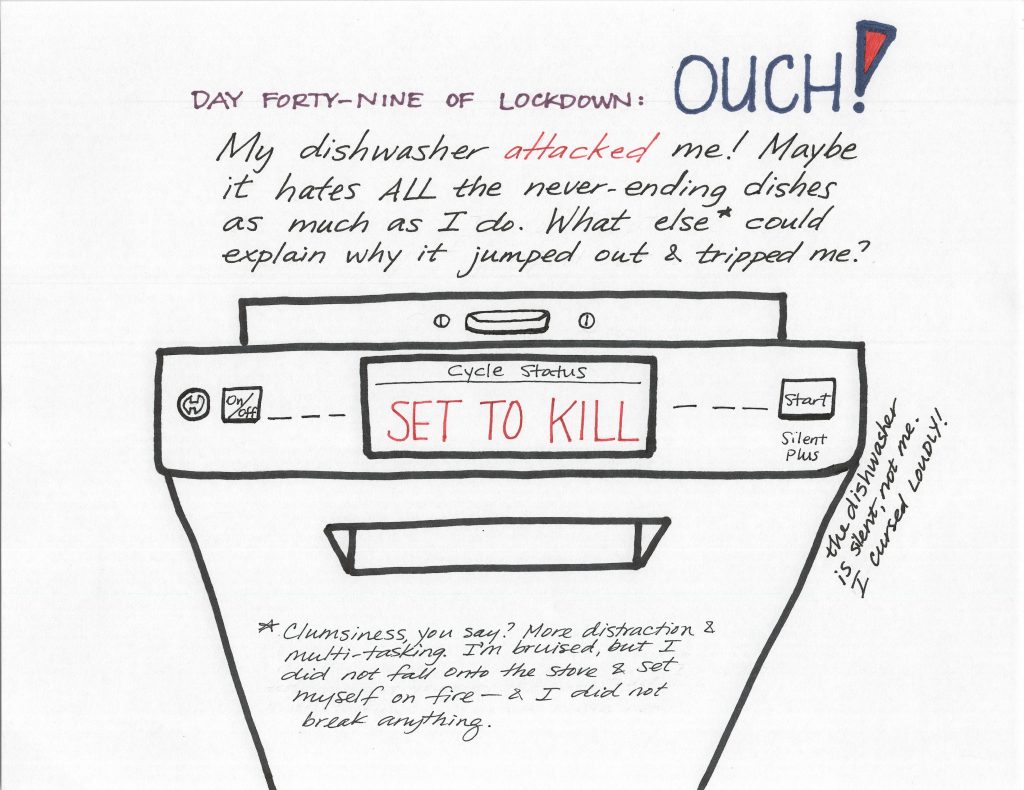 DAY FORTY-NINE OF LOCKDOWN: OUCH!
My dishwasher attacked me! Maybe
it hates ALL the never-ending dishes
as much as I do. What else* could
explain why it jumped out & tripped me?
Cycle Status
On/
off
SET TO KILL
Start
Silent
Plus
the dishwasher
is silent, not me.
I cursed LOUDLY!
* Clumsiness, you say? More distraction &
multi-tasking. I'm bruised, but I
did not fall onto the stove & set
myself on fire — & I did not
break anything.